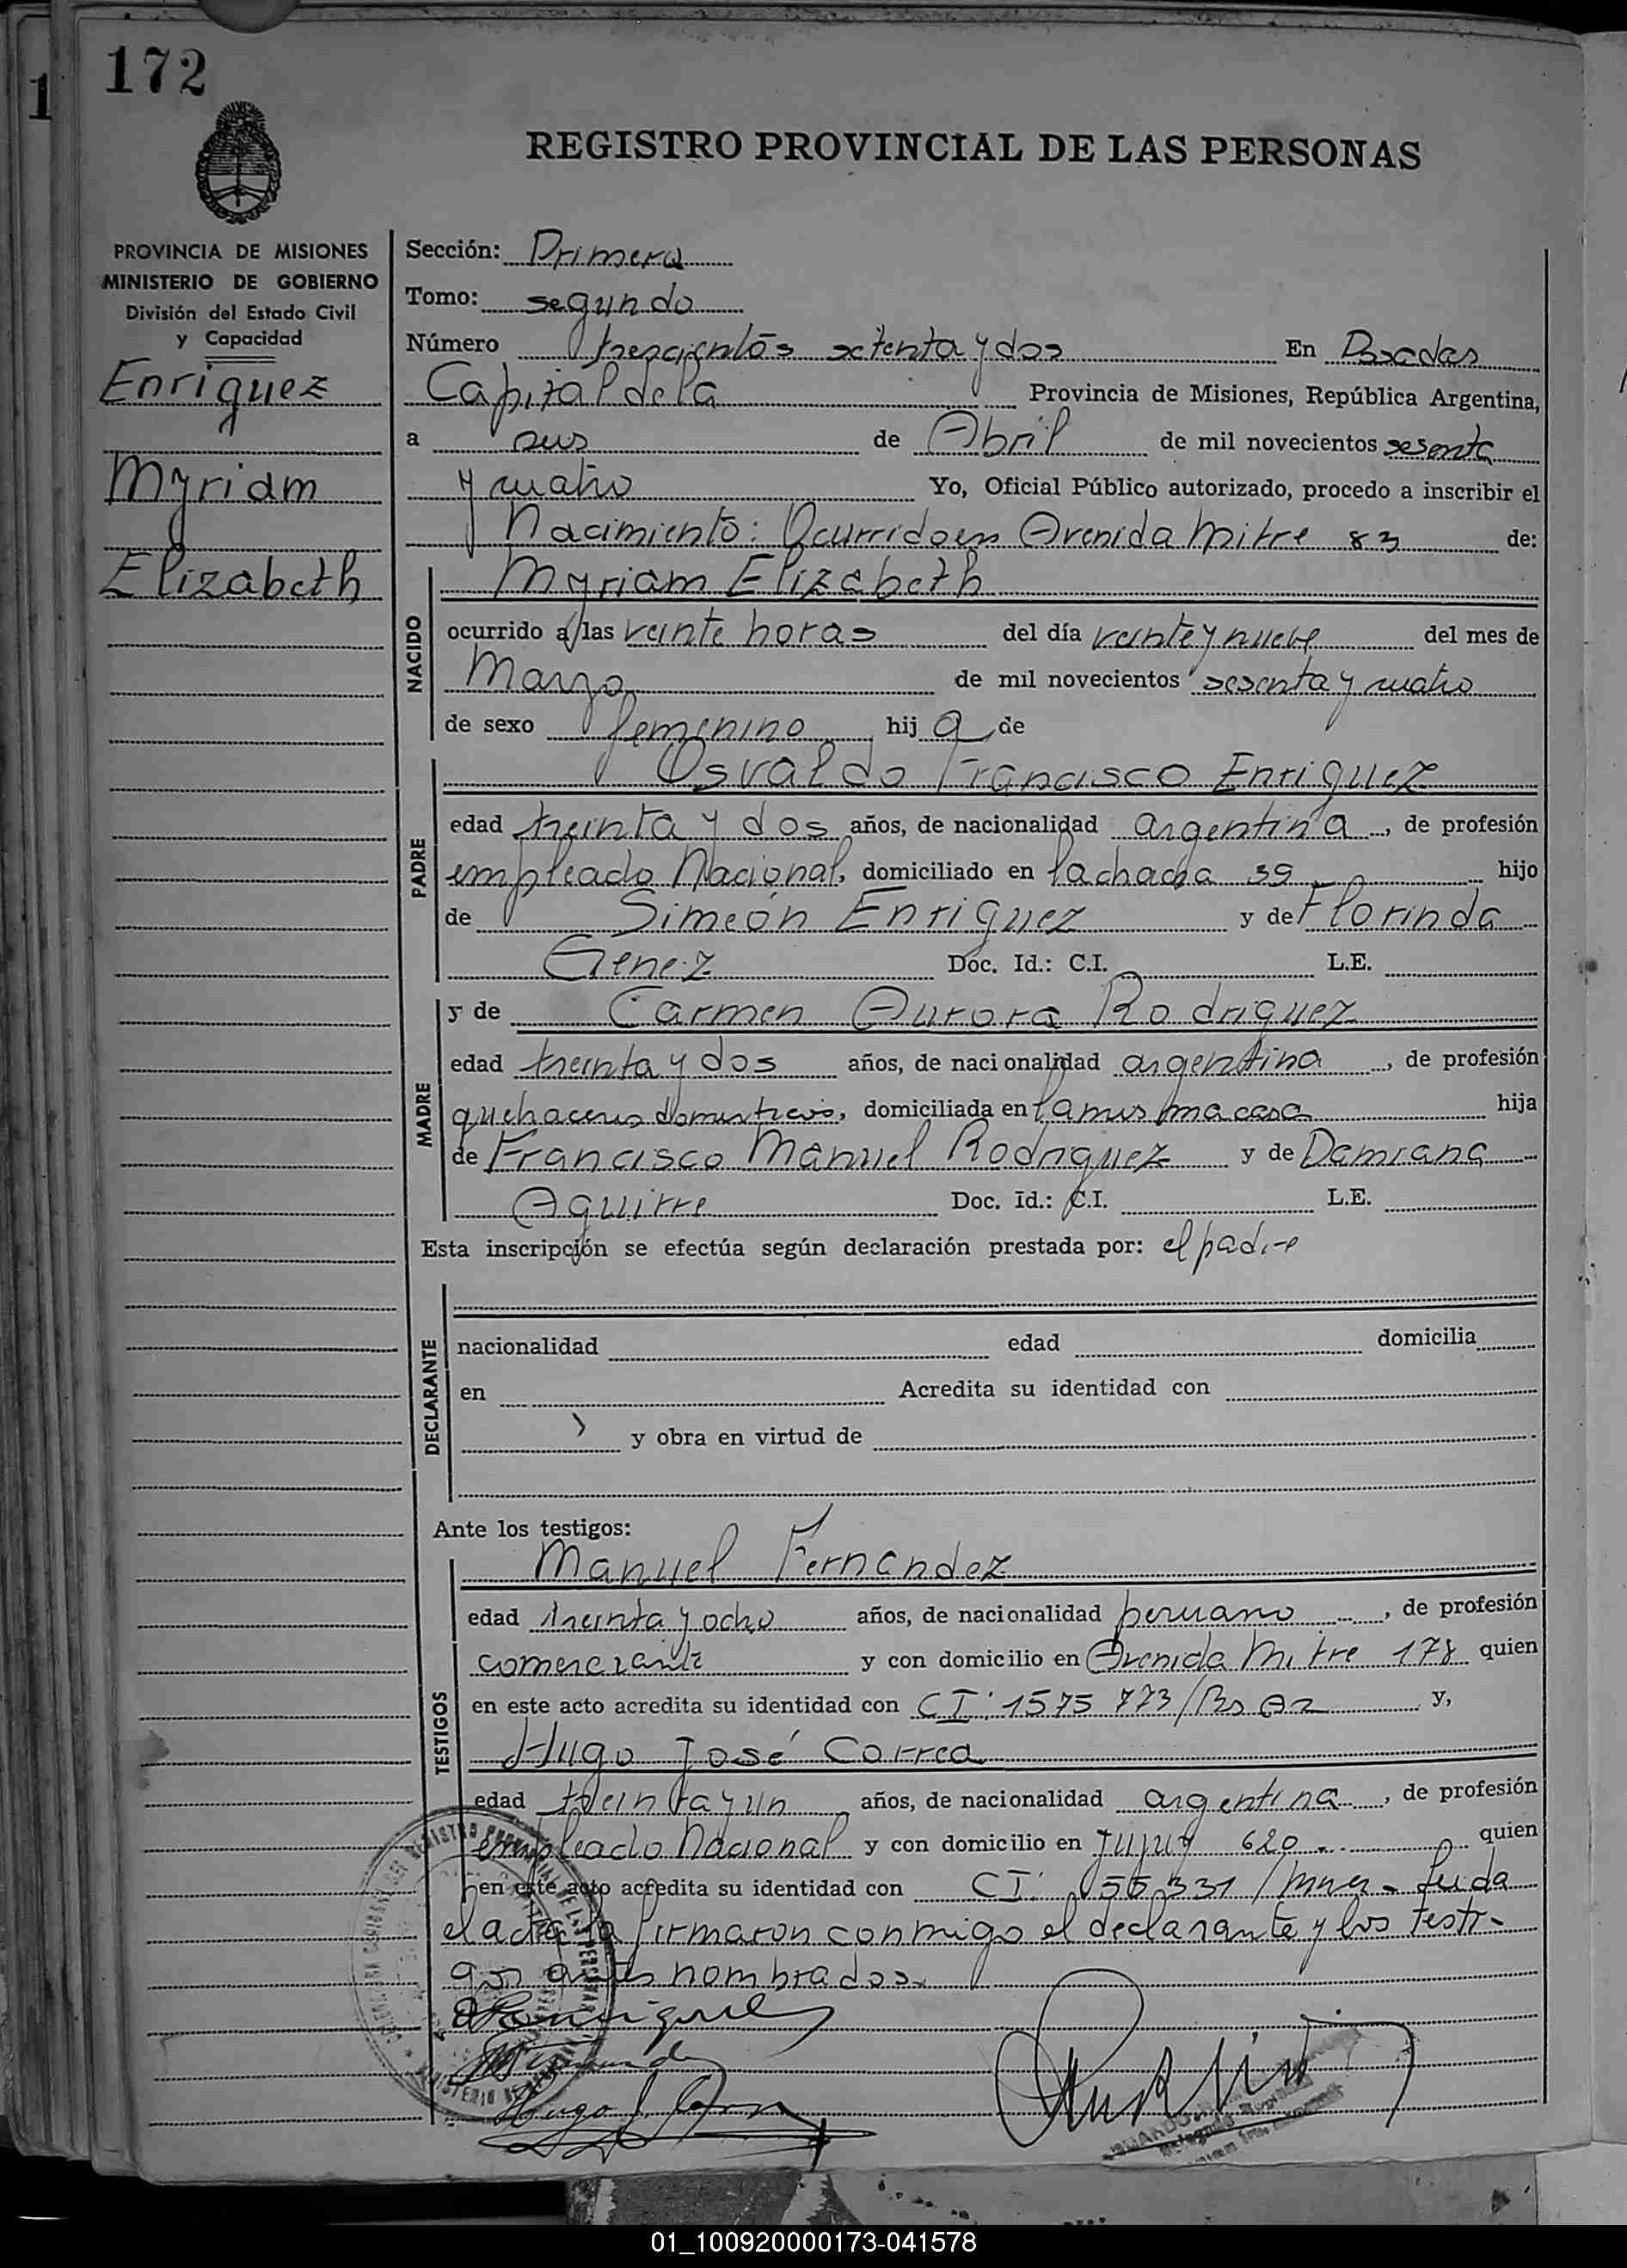 172
1
REGISTRO PROVINCIAL DE LAS PERSONAS
PROVINCIA DE MISIONES
MINISTERIO DE GOBIERNO
División del Estado Civil
y Capacidad
Enriquez
Myriam
Elizabeth
Sección: Primera
Tomo: segundo
Número trescientos setenta y dos En Posadas
Capital de la Provincia de Misiones, República Argentina,
a seis de Abril de mil novecientos sesenta
y cuatro Yo, Oficial Público autorizado, procedo a inscribir el
Nacimiento: Ocurrido en Avenida Mitre 83 de:
NACIDO
Myriam Elizabeth
ocurrido a las veinte horas del día veinte y nueve del mes de
Marzo de mil novecientos sesenta y cuatro
de sexo femenino hija de
PADRE
Osvaldo Francisco Enriquez
edad treinta y dos años, de nacionalidad argentina, de profesión
empleado Nacional, domiciliado en la chacra 39 hijo
de Simeón Enriquez y de Florinda
Genez Doc. Id.: C.I. L.E.
MADRE
y de Carmen Aurora Rodriguez
edad treinta y dos años, de nacionalidad argentina, de profesión
quehaceres domesticos, domiciliada en la misma casa hija
de Francisco Manuel Rodriguez y de Damiana
Aguirre Doc. Id.: C.I. L.E.
Esta inscripción se efectúa según declaración prestada por: el padre
DECLARANTE
nacionalidad edad domicilia
en Acredita su identidad con
y obra en virtud de
Ante los testigos:
TESTIGOS
Manuel Fernandez
edad treinta y ocho años, de nacionalidad peruano, de profesión
comerciante y con domicilio en Avenida Mitre 178 quien
en este acto acredita su identidad con CI: 1575 773/Bs As y,
Hugo José Correa
edad treinta y un años, de nacionalidad argentina, de profesión
empleado Nacional y con domicilio en Jujuy 620 quien
en este acto acredita su identidad con CI. 55 331/Mnes - Leida
el acta la firmaron conmigo el declarante y los testi-
gos antes nombrados.
Hugo J.
01_100920000173-041578